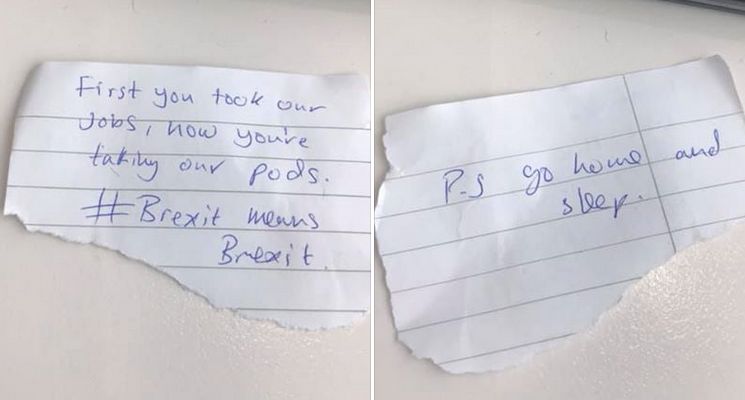 First you took our
Jobs, now you're
taking our pods.
#Brexit means
Brexit.
P.S go home and
sleep.